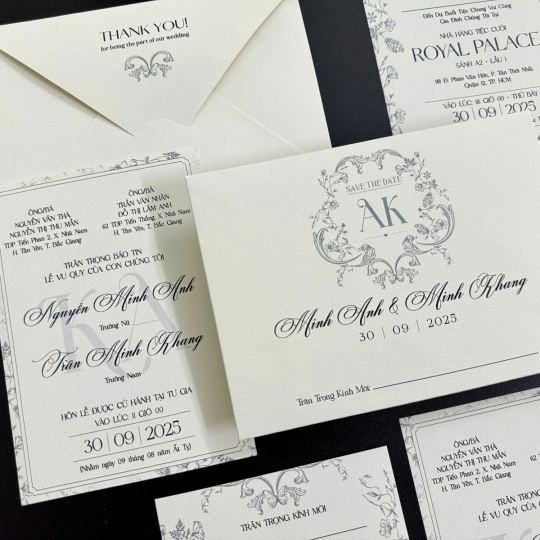 THANK YOU!
for being the part of our wedding
Đến Dự Buổi Tiệc Chung Vui Cùng
Gia Đình Chúng Tôi Tại
NHÀ HÀNG TIỆC CƯỚI
ROYAL PALACE
SẢNH A2 - LẦU 1
98 Đ. Phan Văn Hớn, P. Tân Thới Nhất
Quận 12, TP. HCM
VÀO LÚC: 18 GIỜ 00 - THỨ BẢY
30 | 09 | 2025
ÔNG/BÀ
NGUYỄN VĂN THÀ
NGUYỄN THỊ THU MẪN
TDP Tiến Phan 2, X. Nhã Nam
H. Tân Yên, T. Bắc Giang
ÔNG/BÀ
TRẦN VĂN NHÂN
ĐỖ THỊ LÂM ANH
62 TDP Tiến Thắng, X. Nhã Nam
H. Tân Yên, T. Bắc Giang
TRÂN TRỌNG BÁO TIN
LỄ VU QUY CỦA CON CHÚNG TÔI
KA
Nguyễn Minh Anh
Trưởng Nữ
Trần Minh Khang
Trưởng Nam
HÔN LỄ ĐƯỢC CỬ HÀNH TẠI TƯ GIA
VÀO LÚC: 11 GIỜ 00
30 | 09 | 2025
(Nhằm ngày 09 tháng 08 năm Ất Tỵ)
SAVE THE DATE
AK
Minh Anh & Minh Khang
30 | 09 | 2025
Trân Trọng Kính Mời:
TRÂN TRỌNG KÍNH MỜI
ÔNG/BÀ
NGUYỄN VĂN THÀ
NGUYỄN THỊ THU MẪN
TDP Tiến Phan 2, X. Nhã Nam
H. Tân Yên, T. Bắc Giang
TRÂN TRỌNG
LỄ VU QUY CỦA